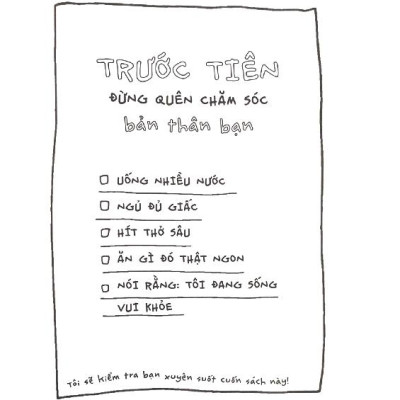 TRƯỚC TIÊN
ĐỪNG QUÊN CHĂM SÓC
bản thân bạn
UỐNG NHIỀU NƯỚC
NGỦ ĐỦ GIẤC
HÍT THỞ SÂU
ĂN GÌ ĐÓ THẬT NGON
NÓI RẰNG: TÔI ĐANG SỐNG
VUI KHỎE
Tôi sẽ kiểm tra bạn xuyên suốt cuốn sách này!